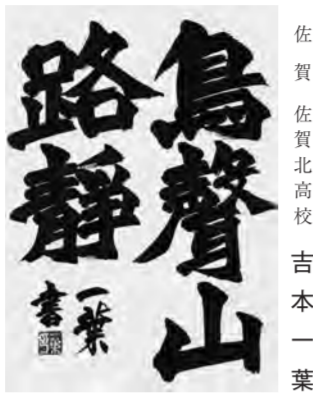 佐賀 佐賀北高校 吉本一葉
鳥聲山
路靜
一葉
書